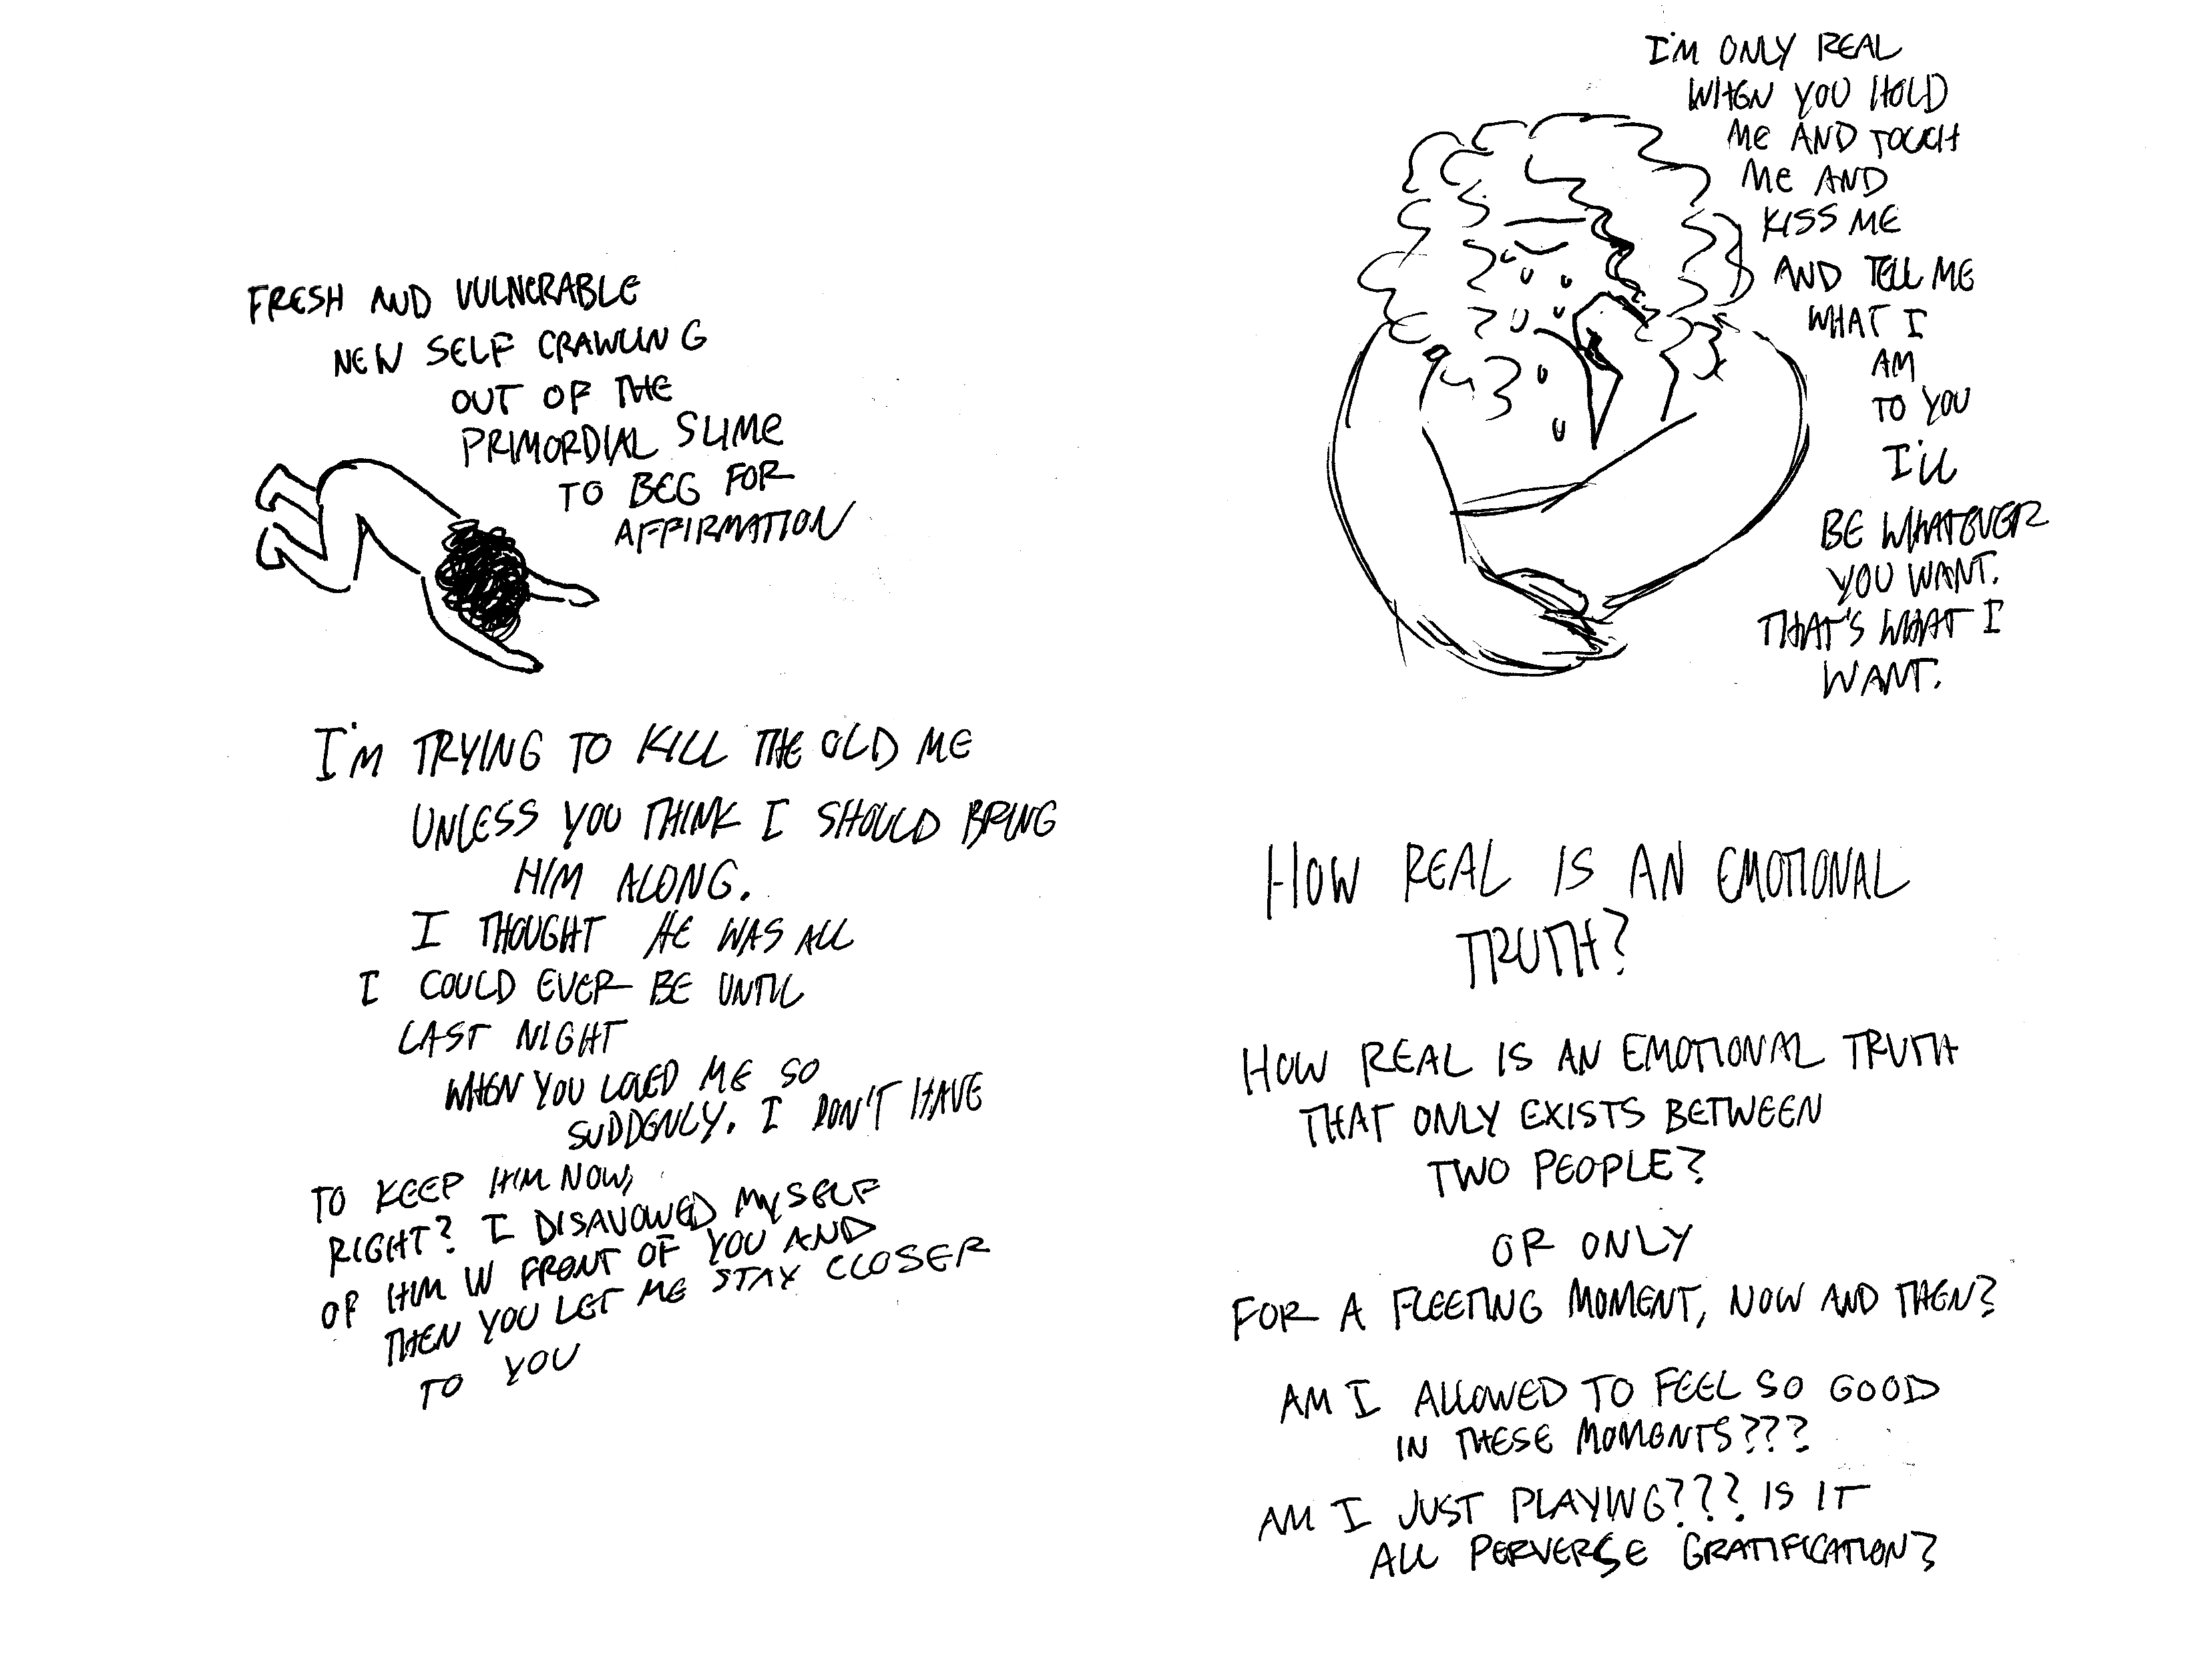 FRESH AND VULNERABLE
NEW SELF CRAWLING
OUT OF THE
PRIMORDIAL SLIME
TO BEG FOR
AFFIRMATION
I'M TRYING TO KILL THE OLD ME
UNLESS YOU THINK I SHOULD BRING
HIM ALONG.
I THOUGHT HE WAS ALL
I COULD EVER BE UNTIL
LAST NIGHT
WHEN YOU LOVED ME SO
SUDDENLY. I DON'T HAVE
TO KEEP HIM NOW,
RIGHT? I DISAVOWED MYSELF
OF HIM IN FRONT OF YOU AND
THEN YOU LET ME STAY CLOSER
TO YOU
I'M ONLY REAL
WHEN YOU HOLD
ME AND TOUCH
ME AND
KISS ME
AND TELL ME
WHAT I
AM
TO YOU
I'LL
BE WHATEVER
YOU WANT.
THAT'S WHAT I
WANT.
HOW REAL IS AN EMOTIONAL
TRUTH?
HOW REAL IS AN EMOTIONAL TRUTH
THAT ONLY EXISTS BETWEEN
TWO PEOPLE?
OR ONLY
FOR A FLEETING MOMENT, NOW AND THEN?
AM I ALLOWED TO FEEL SO GOOD
IN THESE MOMENTS???
AM I JUST PLAYING??? IS IT
ALL PERVERSE GRATIFICATION?